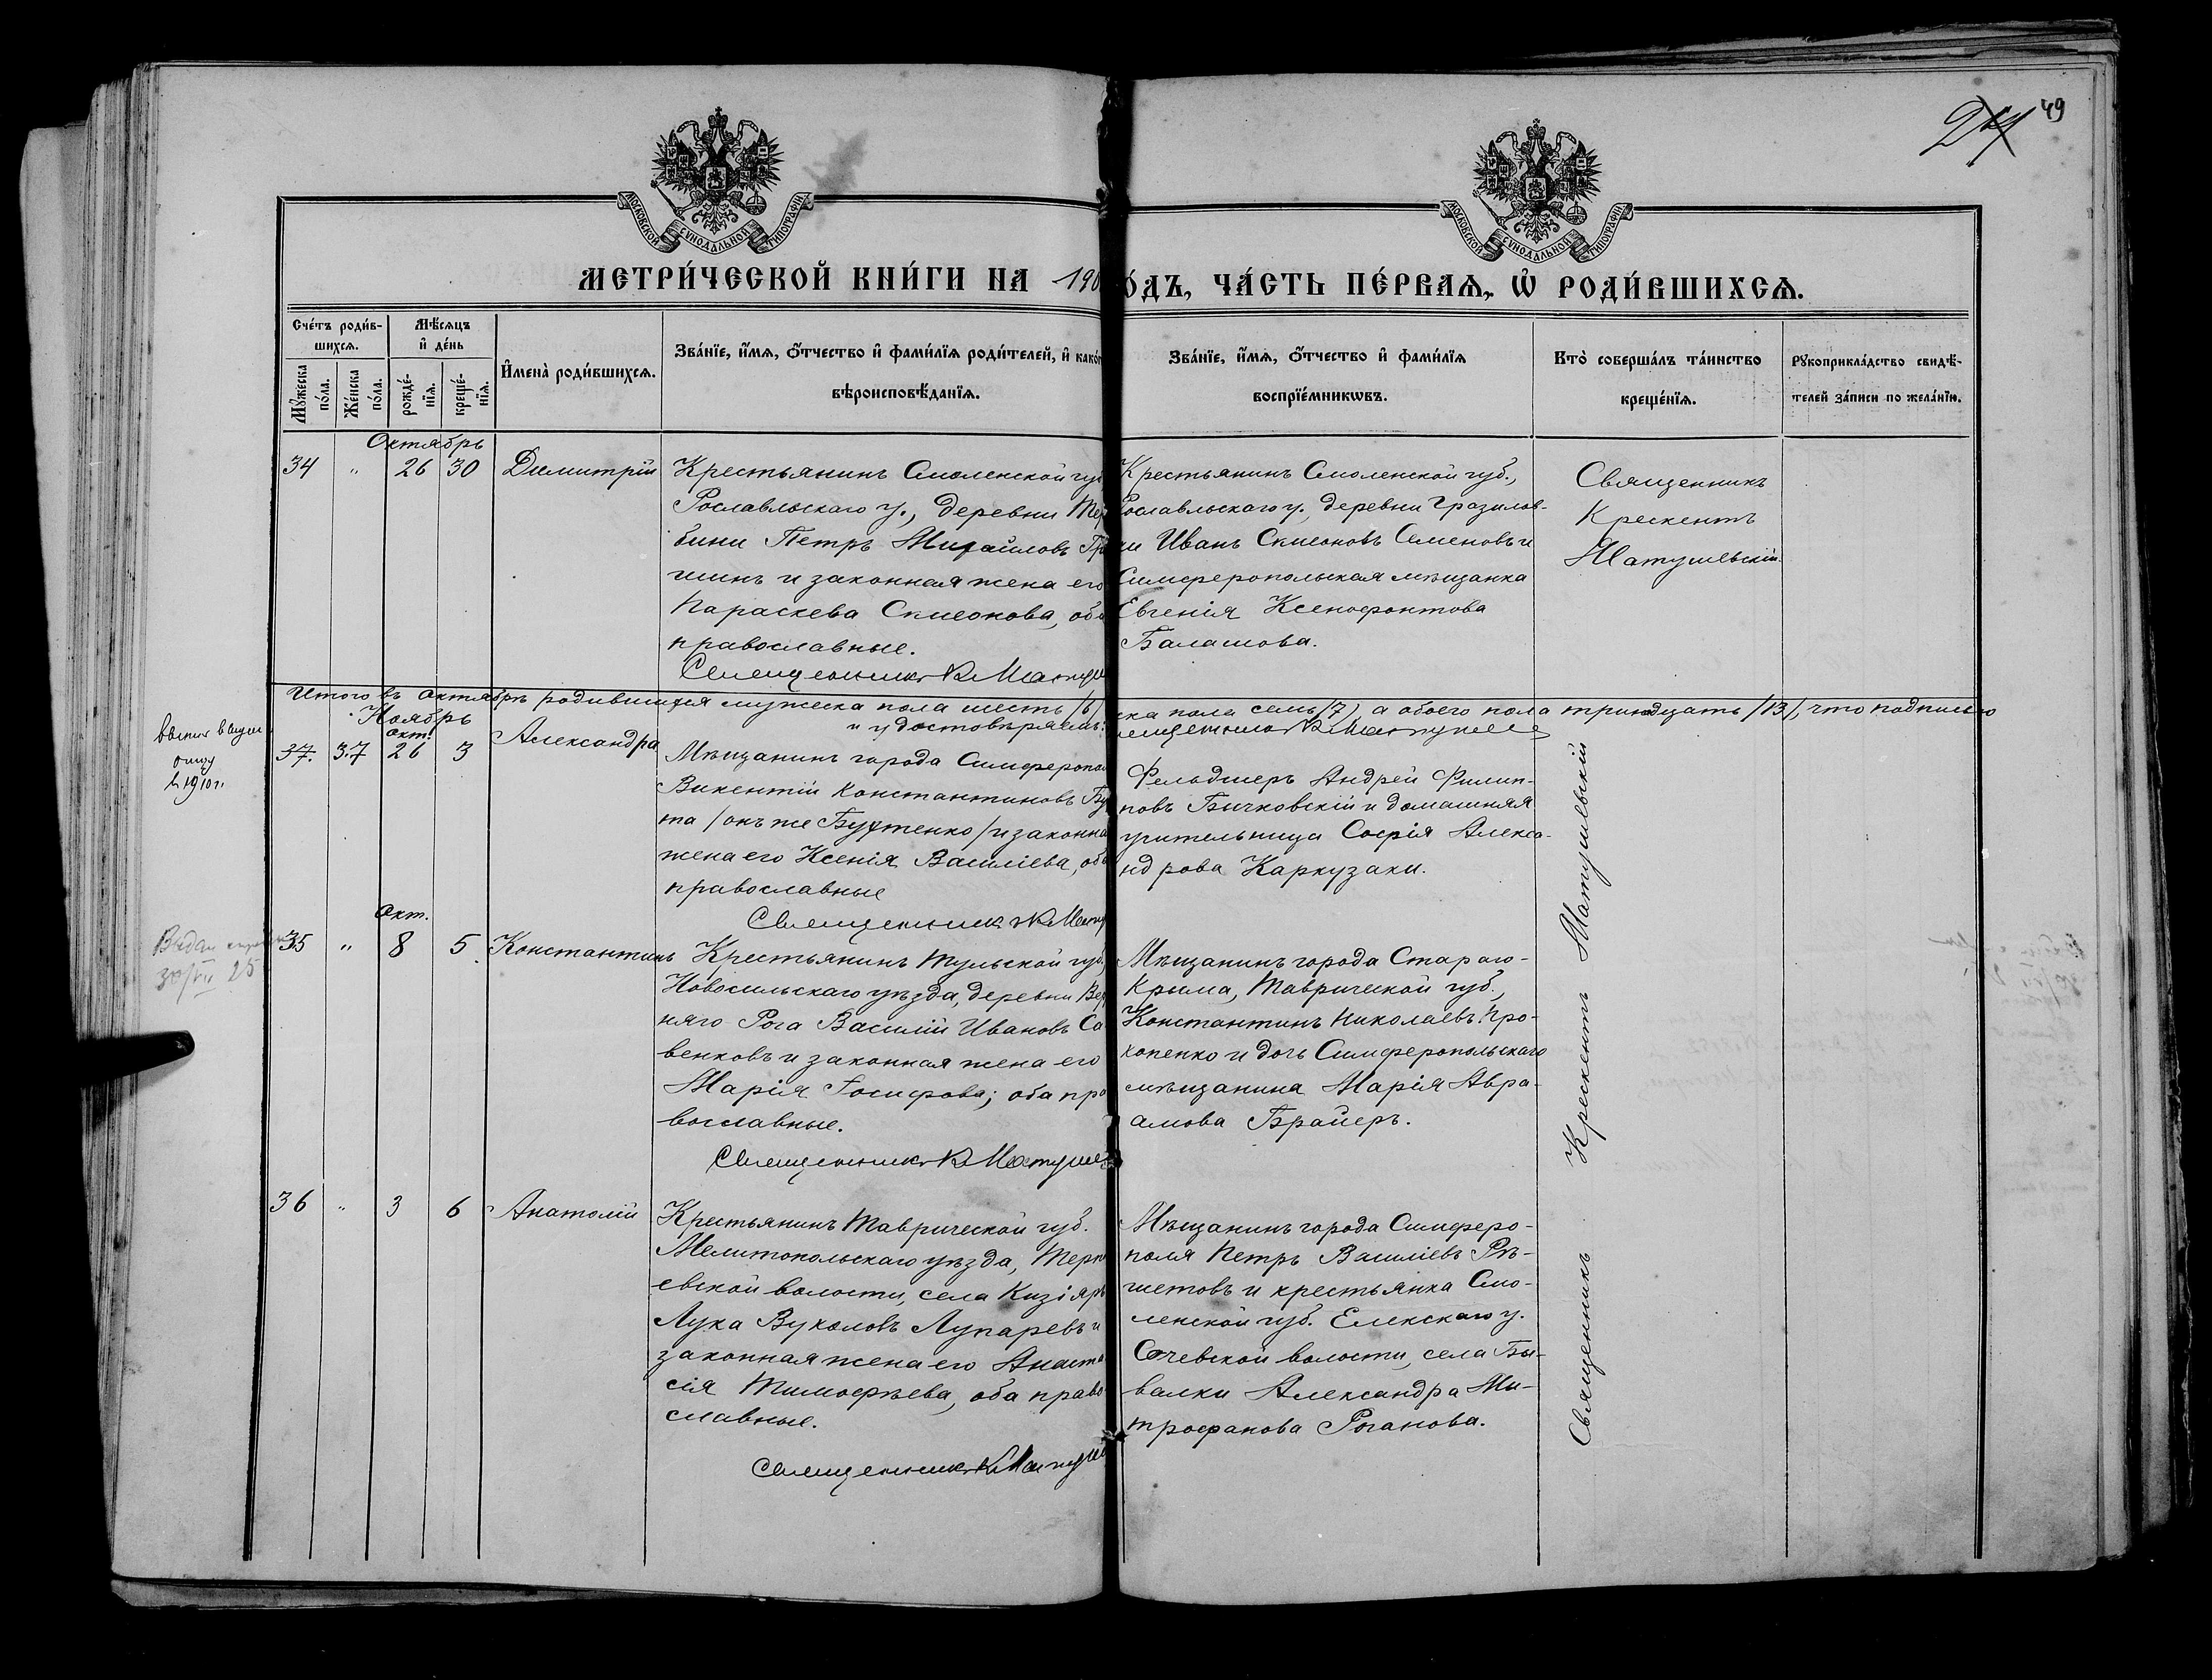 49
МОСКОВСКОЙ СѴНОДАЛЬНОЙ ТИПОГРАФІИ
МОСКОВСКОЙ СѴНОДАЛЬНОЙ ТИПОГРАФІИ
МЕТРИ́ЧЕСКОЙ КНИ́ГИ НА 190
О́ДЪ, ЧА́СТЬ ПЕ́РВАѦ, Ѽ РОДИ́ВШИХСѦ.
Сче́тъ роди́в-
шихсѧ.
Мꙋ́жеска по́ла.
Же́нска по́ла.
Мѣ́сѧцъ
и҆ де́нь
рожде́-
нїѧ.
креще́-
нїѧ.
И҆мена̀ роди́вшихсѧ.
Зва́нїе, и҆́мѧ, ѻ҆́тчество и҆ фами́лїѧ роди́телей, и҆ како́г
вѣроисповѣ́данїѧ.
Зва́нїе, и҆́мѧ, ѻ҆́тчество и҆ фами́лїѧ
воспрїе́мникѡвъ.
Кто̀ соверша́лъ та́инство
креще́нїѧ.
Рꙋкоприкла́дство свидѣ́-
телей за́писи по жела́нїю.
Октябрь
34 " 26 30 Димитрій
Крестьянинъ Смоленской губ
Рославльскаго у., деревни Тер
бини Петръ Михайловъ Гр
шинъ и законная жена его
Параскева Симеонова, оба
православные.
Священникъ К Матуше
Крестьянинъ Смоленской губ.,
Рославльскаго у. деревни Гразилов-
ки Иванъ Симеоновъ Семеновъ и
Симферопольская мѣщанка
Евгенія Ксенофонтова
Балашова.
Священникъ
Крескентъ
Матушевскій.
Итого въ октябрѣ родившихся мужеска пола шесть /6/
ска пола семь /7/, а обоего пола тринадцать /13/, что подписью
и удостовѣряемъ:
Священникъ К Матушев
Ноябрь
в 1910 г.
окт.
37. 37 26 3 Александра
Мѣщанинъ города Симферопол
Викентій Константиновъ Бу
та /онъ же Бухтенко/ и законна
жена его Ксенія Василіева, оба
православные
Священникъ К Матуш
Фельдшеръ Андрей Филип-
повъ Бычковскій и домашняя
учительница Софія Алекса-
ндрова Каркузаки.
окт.
35 " 8 5 Константинъ
Крестьянинъ Тульской губ,
Новосильскаго уѣзда, деревни Вер
няго Рога Василій Ивановъ Са
венковъ и законная жена его
Марія Іосифова; оба пра
вославные.
Священникъ К Матушев
Мѣщанинъ города Стараго-
Крыма, Таврической губ.,
Константинъ Николаевъ Про-
копенко и дочь Симферопольскаго
мѣщанина Марія Авра-
амова Брайеръ.
36 " 3 6 Анатолій
Крестьянинъ Таврической губ.
Мелитопольскаго уѣзда, Терп
евской волости, села Кизіяръ
Лука Вуколовъ Лупаревъ и
законная жена его Анаста
сія Тимофѣева, оба право
славные.
Священникъ К Матушев
Мѣщанинъ города Симферо-
поля Петръ Василіевъ Рѣ-
шетовъ и крестьянка Смо-
ленской губ. Елекскаго у.
волости, села Бы-
валки Александра Ми-
трофанова Роганова.
Священникъ Крескентъ Матушевскій